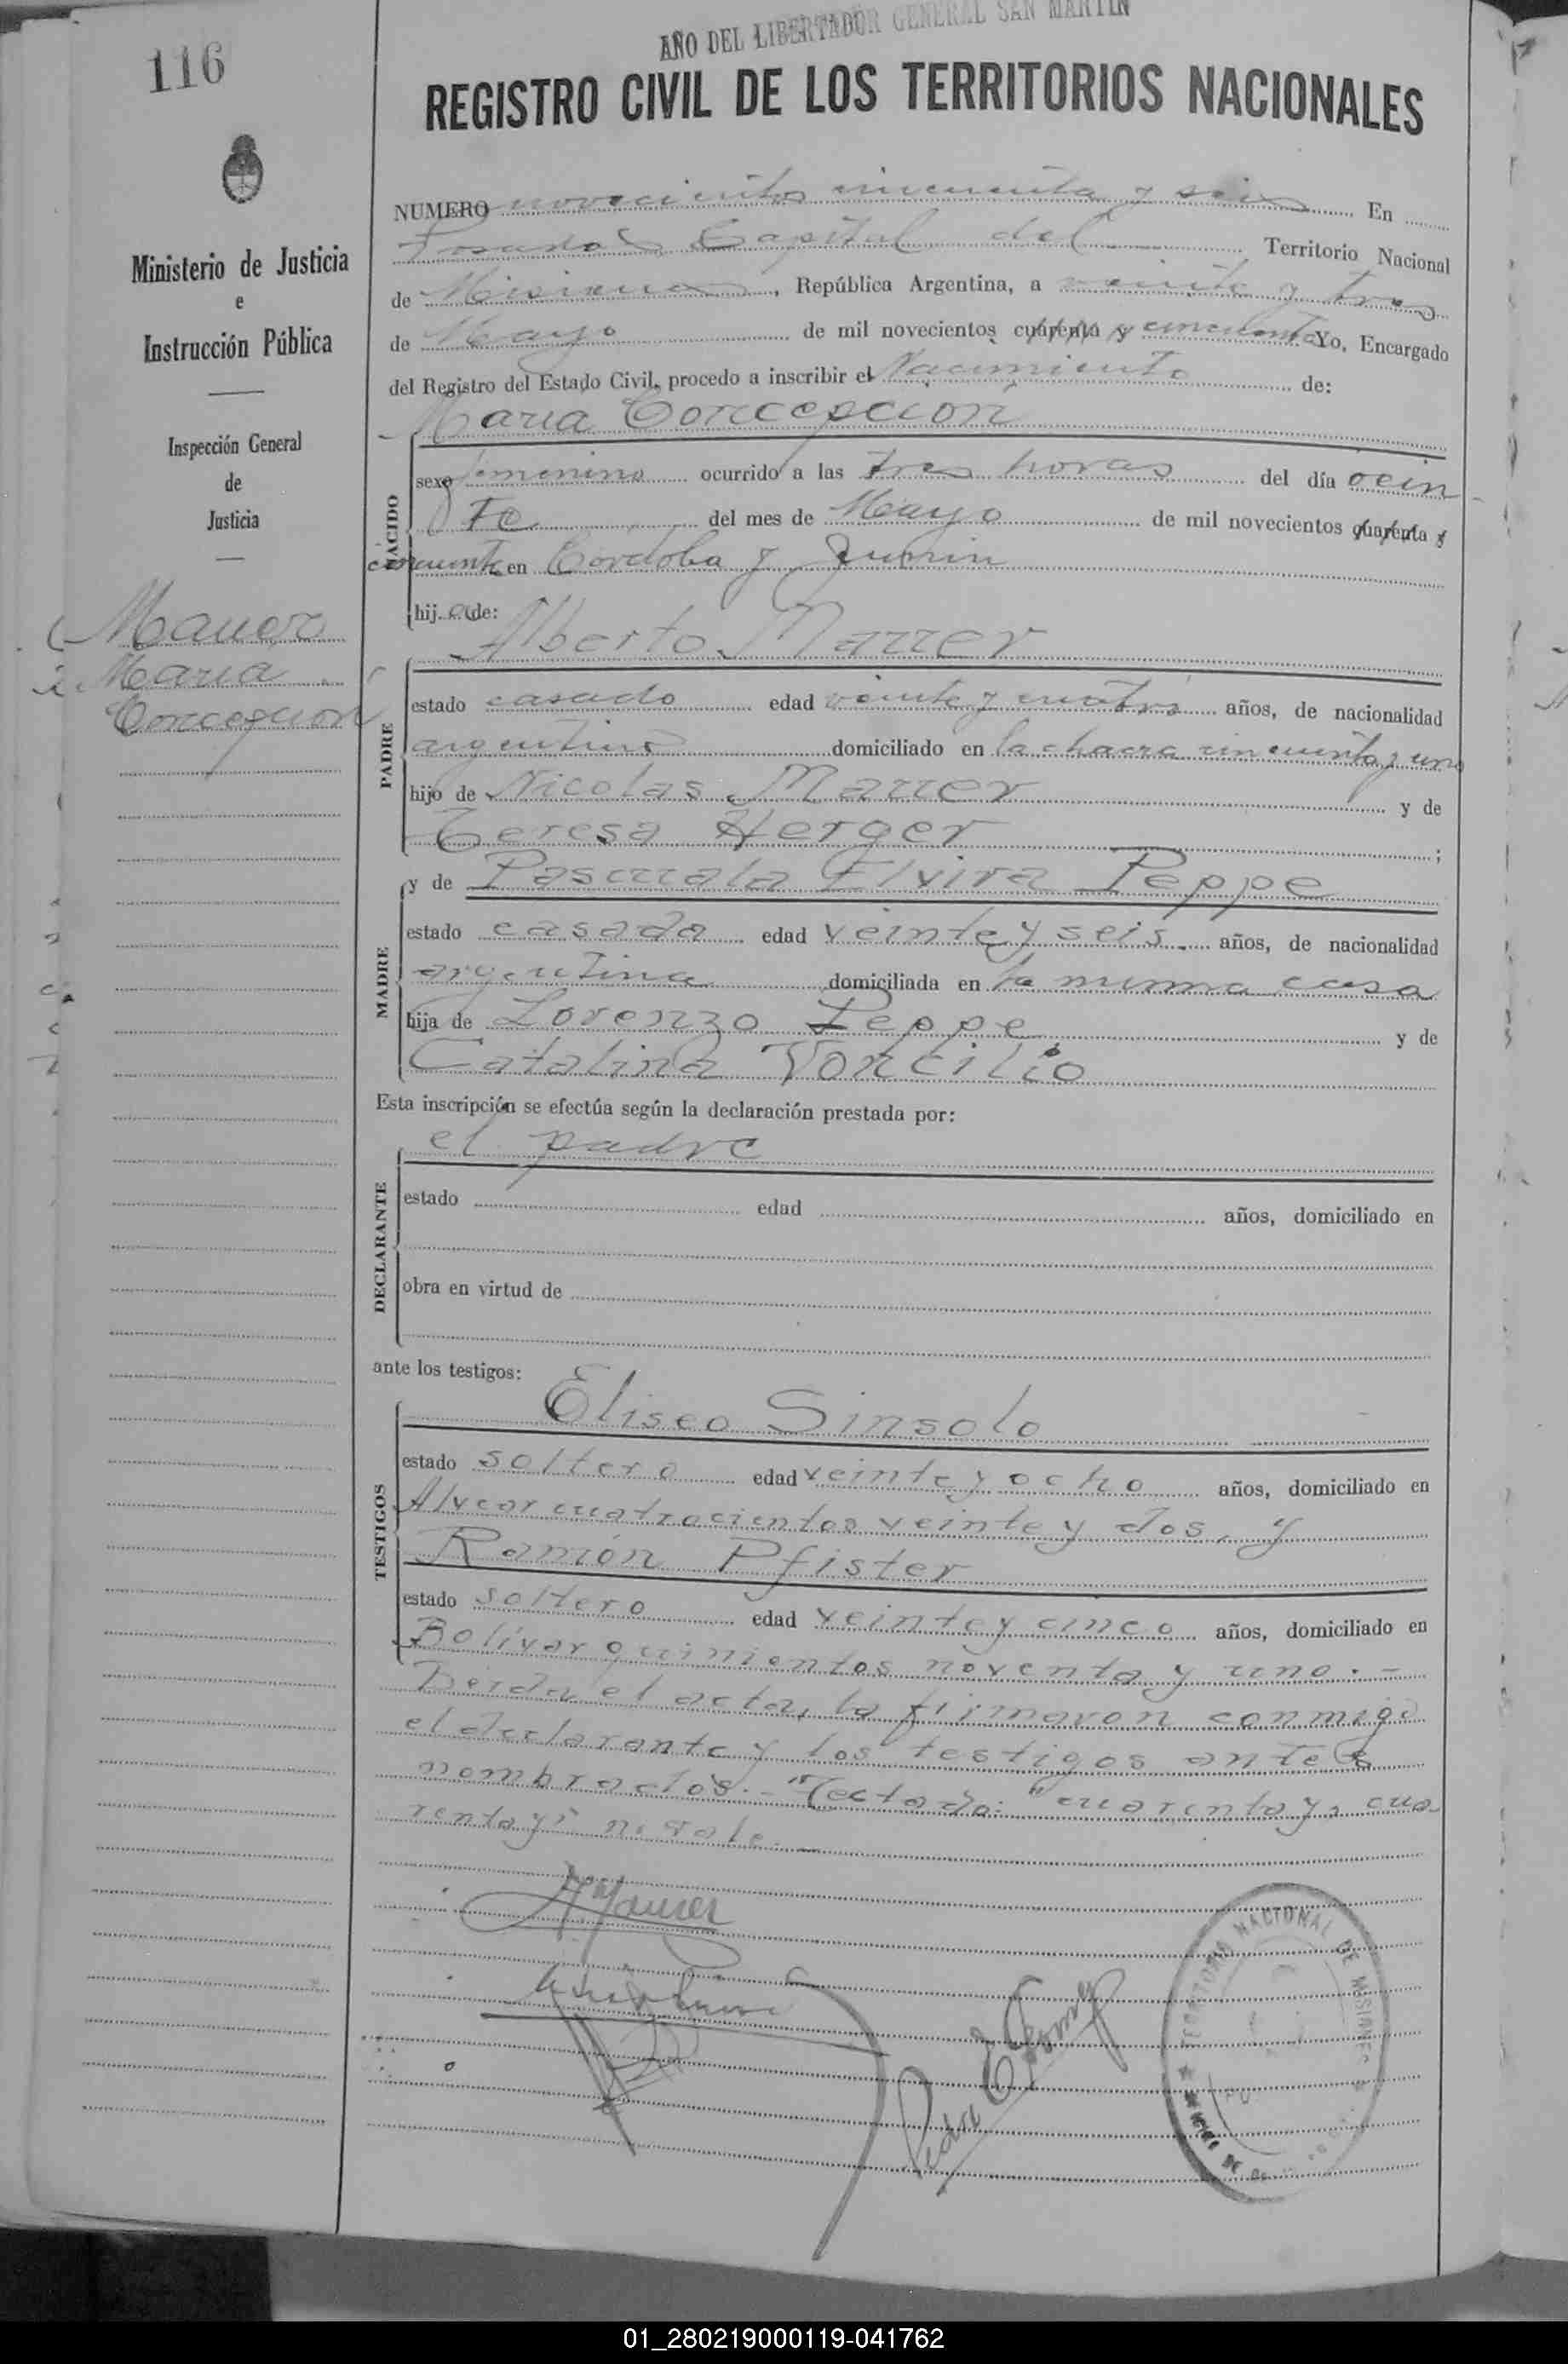 AÑO DEL LIBERTADOR GENERAL SAN MARTIN
116
REGISTRO CIVIL DE LOS TERRITORIOS NACIONALES
Ministerio de Justicia
e
Instrucción Pública
Inspección General
de
Justicia
Maria
Concepcion
NUMERO novecientos cincuenta y seis En
Posadas Capital del Territorio Nacional
de Misiones, República Argentina, a veinte y tres
de Mayo de mil novecientos cuarenta y cincuenta Yo, Encargado
del Registro del Estado Civil, procedo a inscribir el Nacimiento de:
Maria Concepcion
NACIDO
sexo femenino ocurrido a las tres horas del día
del mes de Mayo de mil novecientos cuarenta y
cincuenta en Córdoba y Junin
hij a de:
Alberto Maurer
PADRE
estado casado edad veinte y cuatro años, de nacionalidad
argentino domiciliado en la chacra cincuenta y uno
hijo de Nicolas Maurer y de
Teresa Herger;
MADRE
y de Pascuala Elvira Peppe
estado casada edad veinte y seis años, de nacionalidad
argentina domiciliada en la misma casa
hija de Lorenzo Peppe y de
Catalina Voncilio
Esta inscripción se efectúa según la declaración prestada por:
el padre
DECLARANTE
estado edad años, domiciliado en
obra en virtud de
ante los testigos:
TESTIGOS
Eliseo Sinsolo
estado soltero edad veinte y ocho años, domiciliado en
Alvear cuatrocientos veinte y dos, y
Ramón Pfister
estado soltero edad veinte y cinco años, domiciliado en
Bolívar quinientos noventa y uno.-
el acta, la firmaron conmigo
el declarante y los testigos antes
nombrados.- Testado: "cuarenta y, cua-
renta y" no vale.
A Maurer
Pedro Gomez
TERRITORIO NACIONAL DE MISIONES
01_280219000119-041762